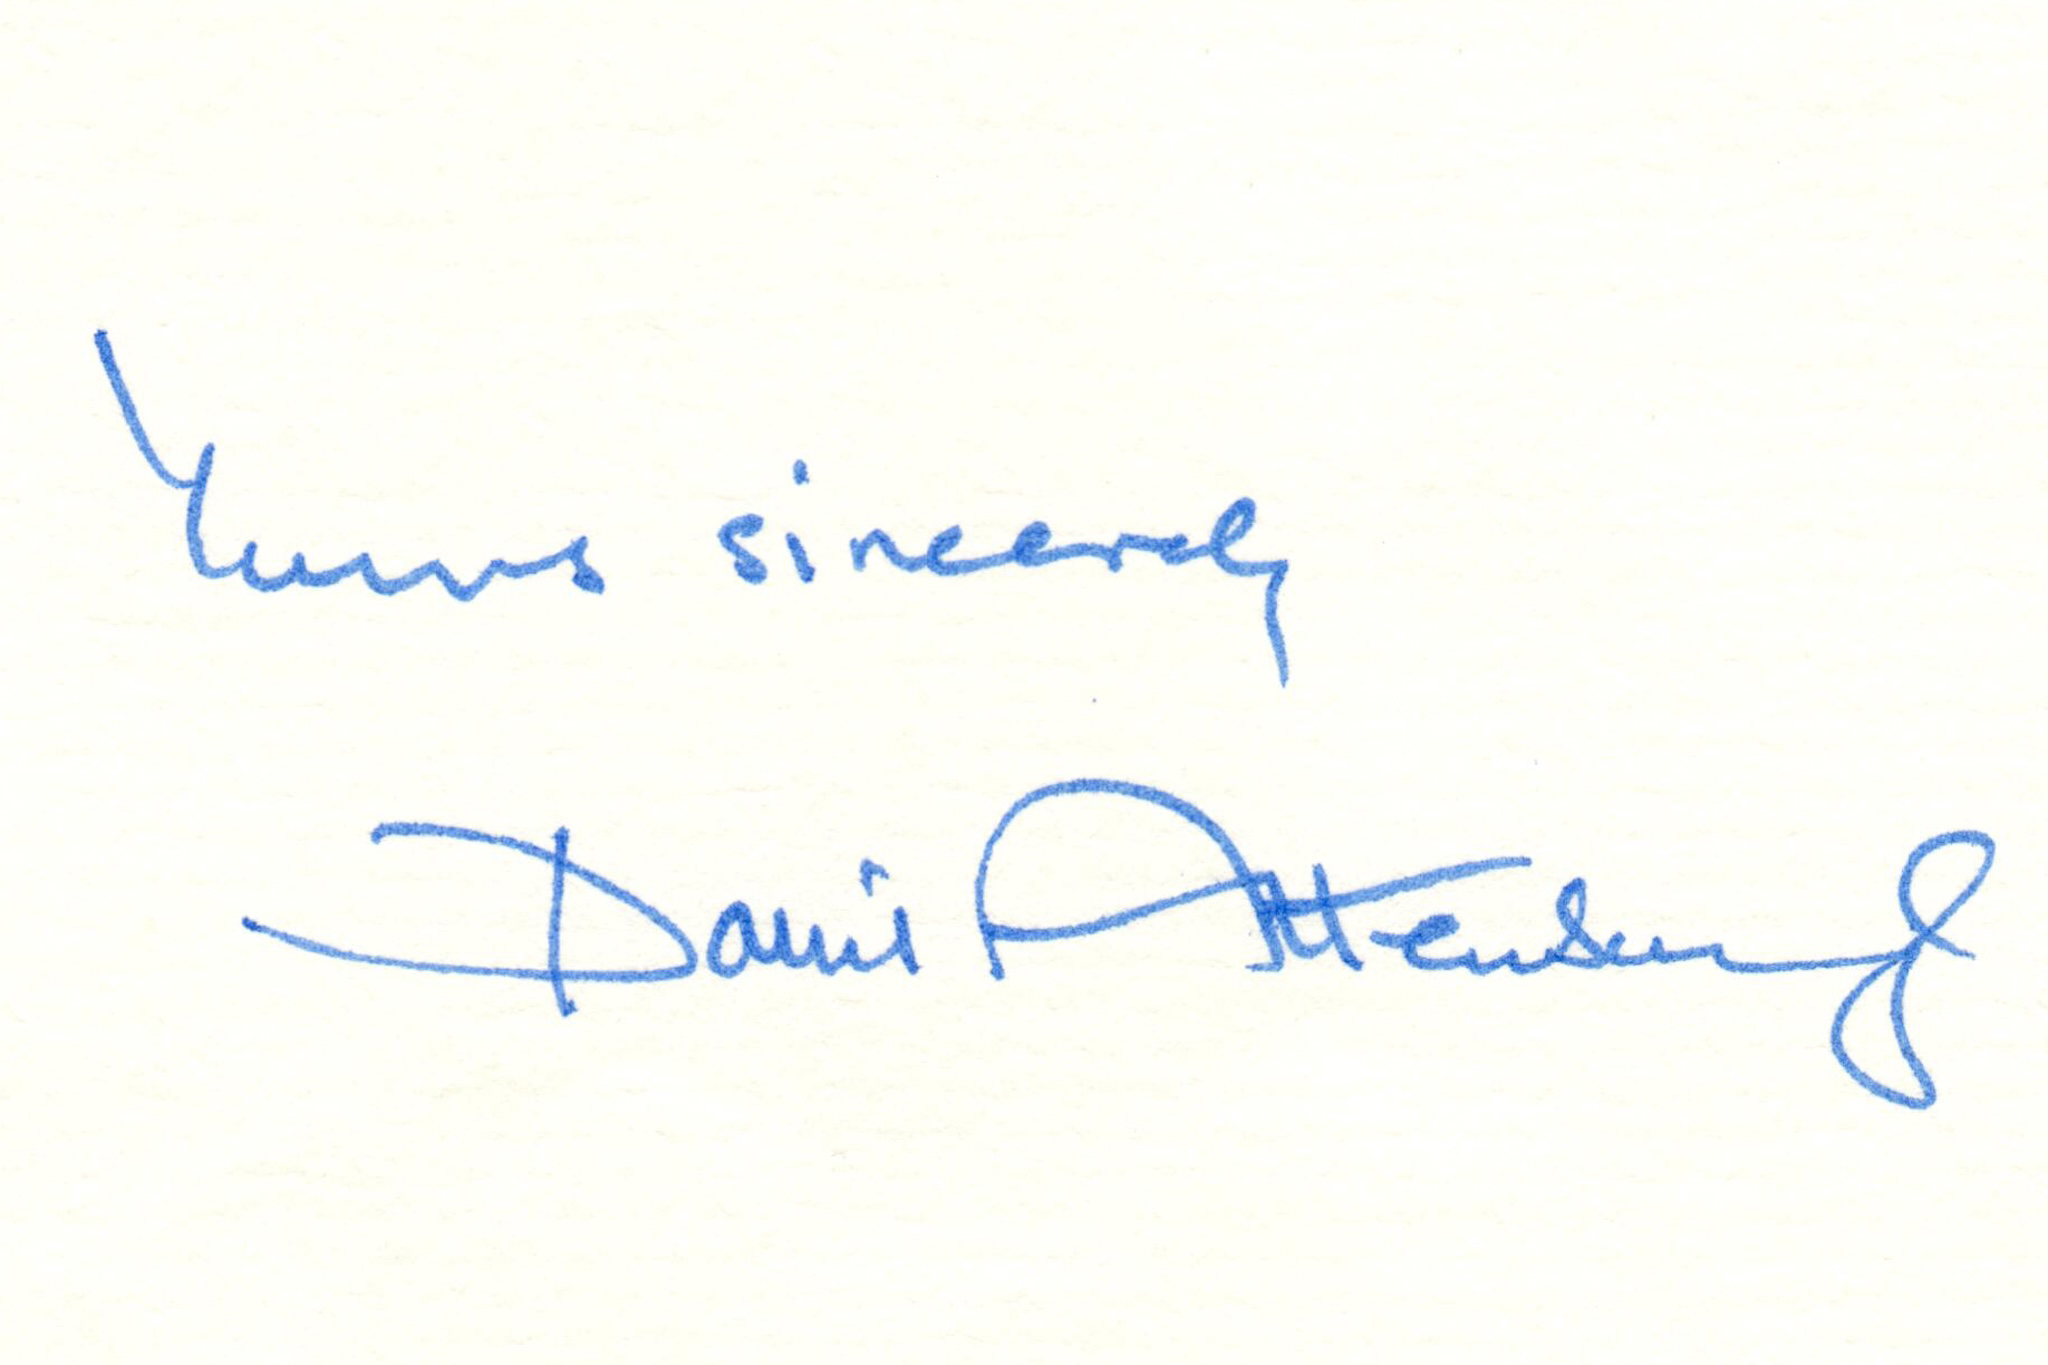 Yours sincerely
David Attenborough